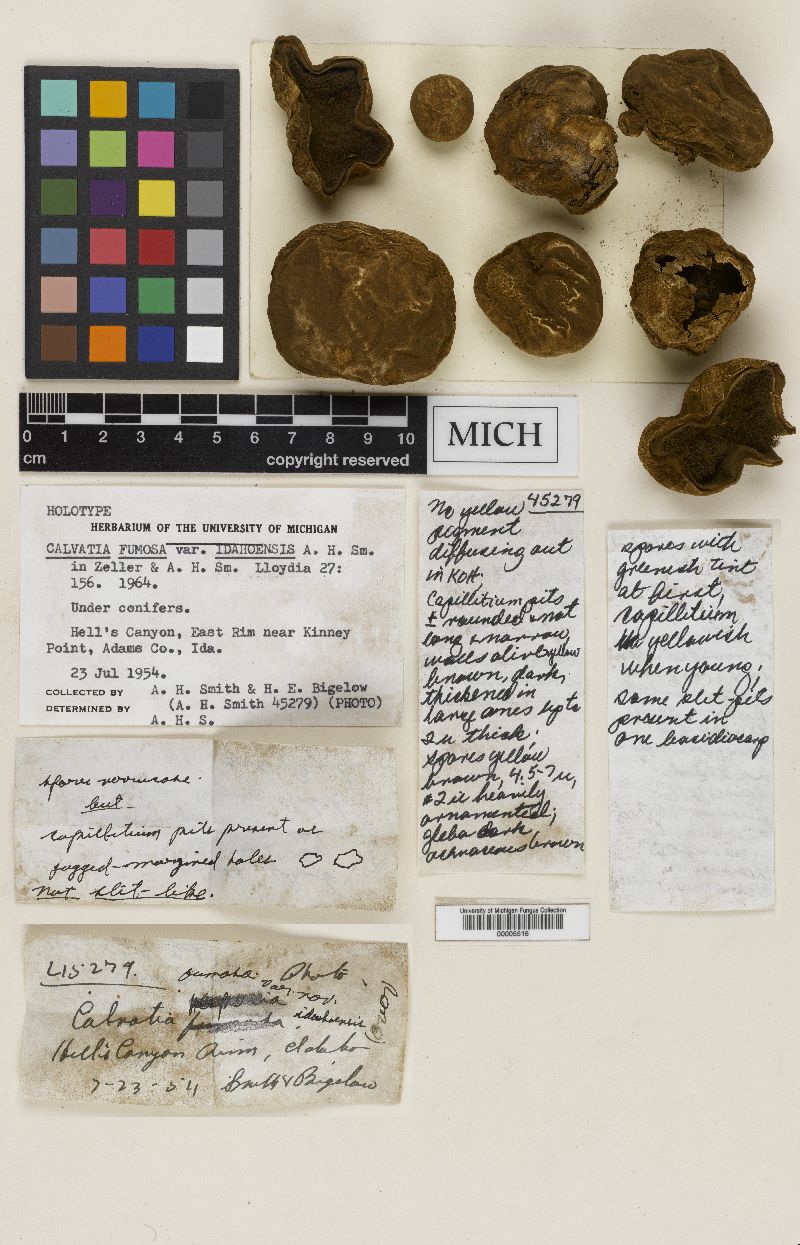 0 1 2 3 4 5 6 7 8 9 10
cm copyright reserved
MICH
HOLOTYPE
HERBARIUM OF THE UNIVERSITY OF MICHIGAN
CALVATIA FUMOSA var. IDAHOENSIS A. H. Sm.
in Zeller & A. H. Sm. Lloydia 27:
156. 1964.
Under conifers.
Hell's Canyon, East Rim near Kinney
Point, Adams Co., Ida.
23 Jul 1954.
COLLECTED BY A. H. Smith & H. E. Bigelow
DETERMINED BY (A. H. Smith 45279) (PHOTO)
A. H. S.
No yellow 45279
pigment
diffusing out
in KOH.
Capillitium pits
± rounded & not
long & narrow,
walls olive yellow
brown, dark,
thickened in
large ones up to
2u thick.
spores yellow
brown, 4.5-7u,
±2u heavily
ornamented;
gleba dark
brown
spores with
greenish tint
at first,
capillitium
yellowish
when young;
some slit pits
present in
one basidiocarp
spore
but-
capillitium pits present as
jagged-margined holes
not slit-like.
45279. fumosa Photo
var. nov.
Calvatia idahoensis
Hell's Canyon Rim, Idaho
7-23-54 Smith & Bigelow
University of Michigan Fungus Collection
00005516